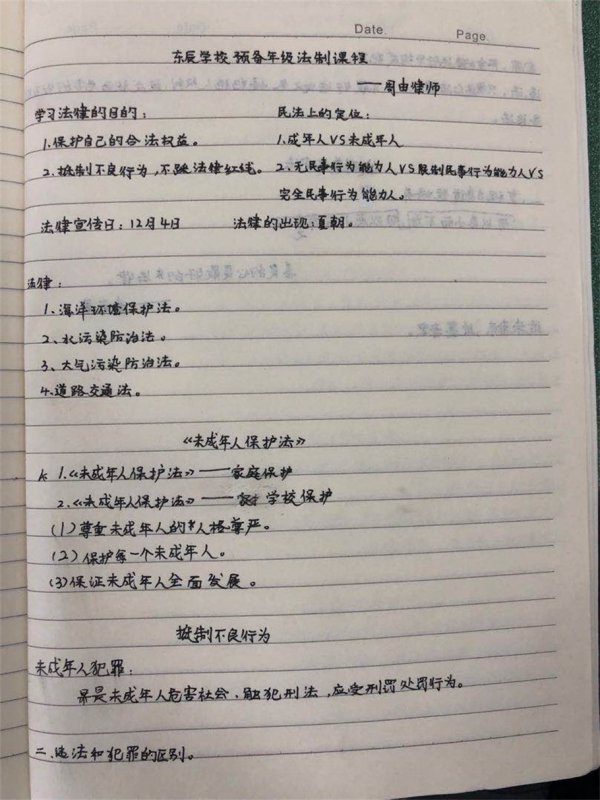 Date.
Page.
东辰学校预备年级法制课程
——周由律师
学习法律的目的： 民法上的定位：
1.保护自己的合法权益。 1.成年人VS未成年人
2.抵制不良行为，不踩法律红线。 2.无民事行为能力人VS限制民事行为能力人VS
完全民事行为能力人。
法律宣传日：12月4日 法律的出现：夏朝。
法律：
1.海洋环境保护法。
2.水污染防治法。
3、大气污染防治法。
4.道路交通法。
《未成年人保护法》
1.《未成年人保护法》——家庭保护
2.《未成年人保护法》——学校保护
(1)尊重未成年人的人格尊严。
(2)保护每一个未成年人。
(3)保证未成年人全面发展。
抵制不良行为
未成年人犯罪：
是未成年人危害社会、触犯刑法，应受刑罚处罚行为。
二.违法和犯罪的区别。